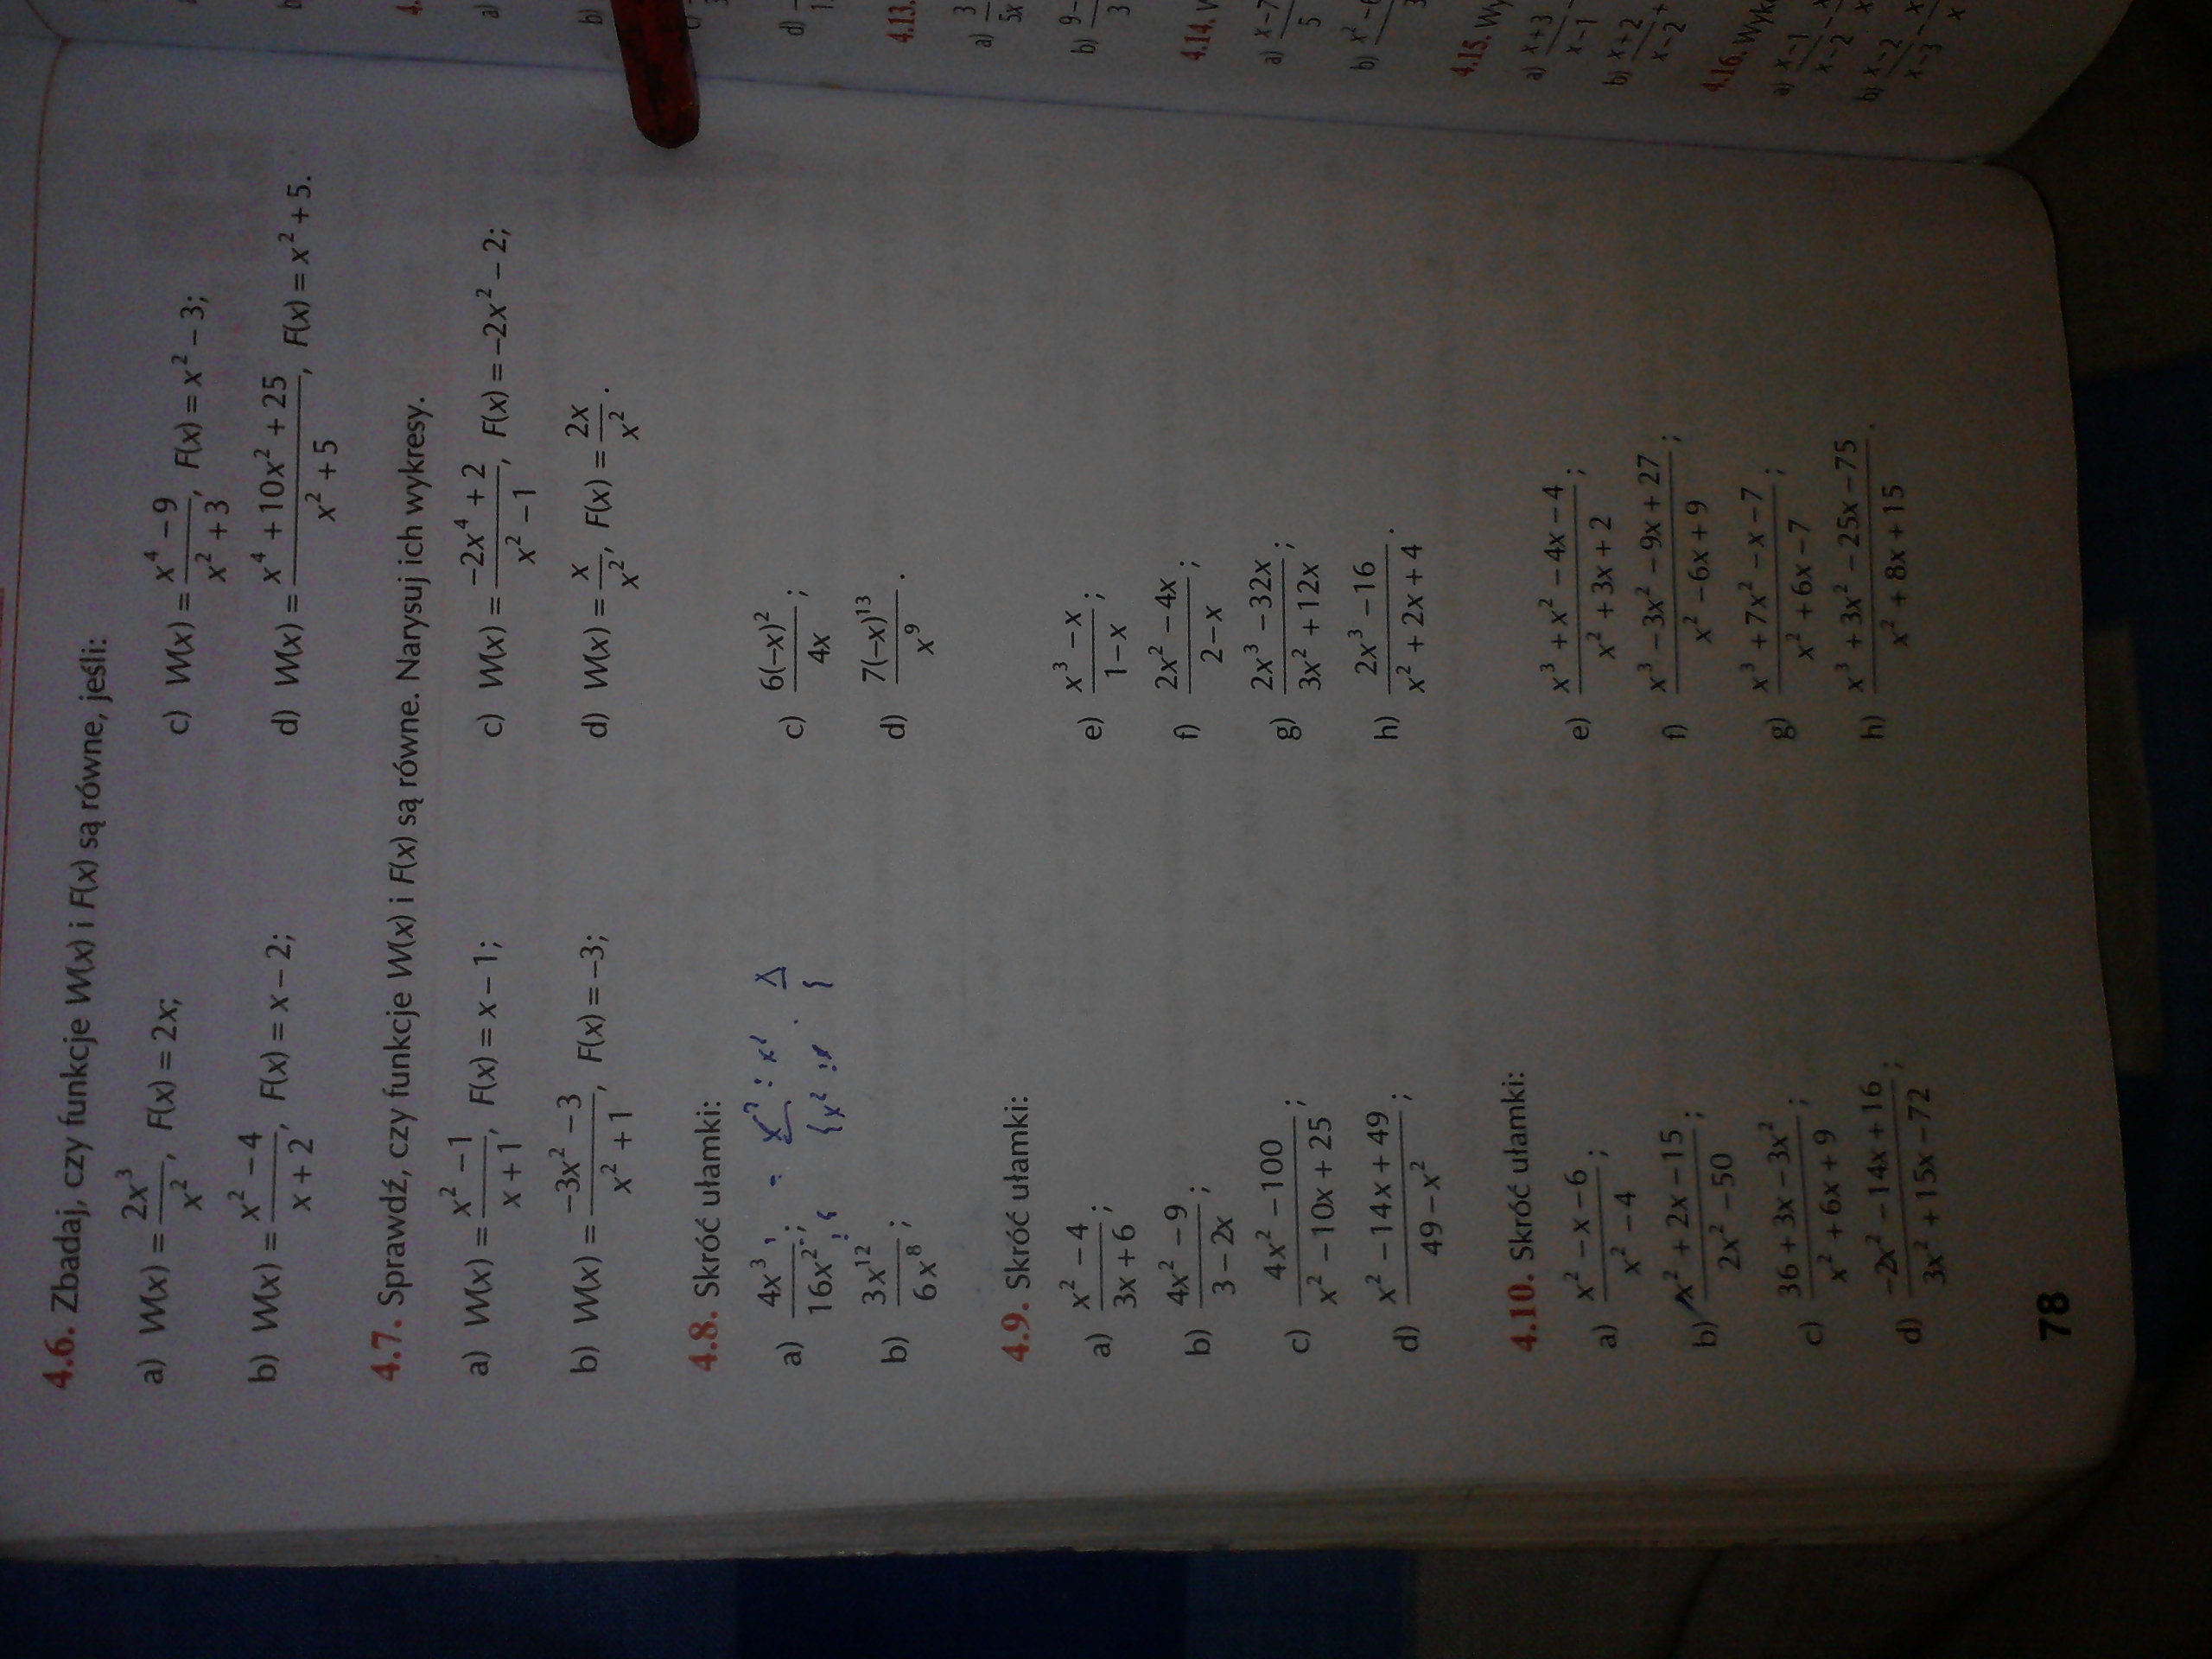 4.6. Zbadaj, czy funkcje W(x) i F(x) są równe, jeśli:
a) W(x) = 2x³/x², F(x) = 2x;
c) W(x) = (x⁴ − 9)/(x² + 3), F(x) = x² − 3;
b) W(x) = (x² − 4)/(x + 2), F(x) = x − 2;
d) W(x) = (x⁴ + 10x² + 25)/(x² + 5), F(x) = x² + 5.
4.7. Sprawdź, czy funkcje W(x) i F(x) są równe. Narysuj ich wykresy.
a) W(x) = (x² − 1)/(x + 1), F(x) = x − 1;
c) W(x) = (−2x⁴ + 2)/(x² − 1), F(x) = −2x² − 2;
b) W(x) = (−3x² − 3)/(x² + 1), F(x) = −3;
d) W(x) = x/x², F(x) = 2x/x².
4.8. Skróć ułamki:
a) 4x³/16x²;
c) 6(−x)²/4x;
b) 3x¹²/6x⁸;
d) 7(−x)¹³/x⁹.
4.9. Skróć ułamki:
a) (x² − 4)/(3x + 6);
e) (x³ − x)/(1 − x);
b) (4x² − 9)/(3 − 2x);
f) (2x² − 4x)/(2 − x);
c) (4x² − 100)/(x² − 10x + 25);
g) (2x³ − 32x)/(3x² + 12x);
d) (x² − 14x + 49)/(49 − x²);
h) (2x³ − 16)/(x² + 2x + 4).
4.10. Skróć ułamki:
a) (x² − x − 6)/(x² − 4);
e) (x³ + x² − 4x − 4)/(x² + 3x + 2);
b) (x² + 2x − 15)/(2x² − 50);
f) (x³ − 3x² − 9x + 27)/(x² − 6x + 9);
c) (36 + 3x − 3x²)/(x² + 6x + 9);
g) (x³ + 7x² − x − 7)/(x² + 6x − 7);
d) (−2x² − 14x + 16)/(3x² + 15x − 72);
h) (x³ + 3x² − 25x − 75)/(x² + 8x + 15).
78
4.13.
a) 3/5x
4.14.
a) x − 7/5
4.15.
a) x + 3/x − 1
b) x + 2/x − 2 +
4.16. Wyk
a) x − 1/x − 2
b) x − 2/x − 3